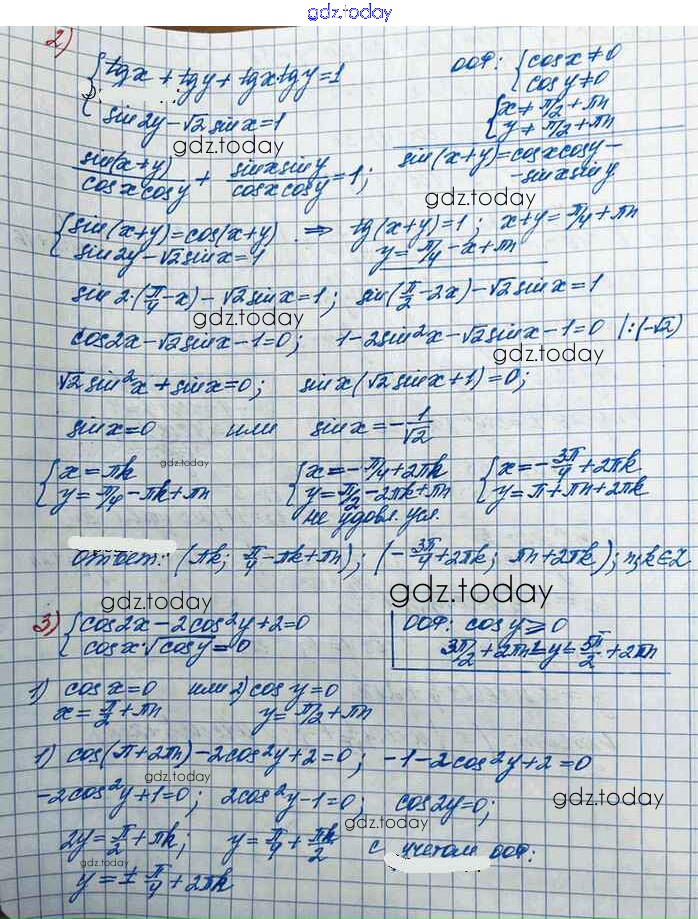 gdz.today
2) { tgx + tgy + tgx tgy = 1      ООФ: { cosx ≠ 0
cosy ≠ 0
{ sin2y − √2 sinx = 1      { x ≠ π/2 + πn
y ≠ π/2 + πn
gdz.today
sin(x+y)/cosxcosy + sinxsiny/cosxcosy = 1;      sin(x+y) = cosxcosy −
− sinxsiny
gdz.today
{ sin(x+y) = cos(x+y)   ⇒   tg(x+y) = 1;   x+y = π/4 + πn
sin2y − √2 sinx = 1      y = π/4 − x + πn
sin2·(π/4 − x) − √2 sinx = 1;   sin(π/2 − 2x) − √2 sinx = 1
gdz.today
cos2x − √2 sinx − 1 = 0;   1 − 2sin²x − √2 sinx − 1 = 0 |:(−√2)
gdz.today
√2 sin²x + sinx = 0;   sinx(√2 sinx + 1) = 0;
sinx = 0   или   sinx = −1/√2
gdz.today
{ x = πk      { x = −π/4 + 2πk      { x = −3π/4 + 2πk
y = π/4 − πk + πn      y = π/2 − 2πk + πn      y = π + πn + 2πk
не удовл. усл.
Ответ: (πk; π/4 − πk + πn); (−3π/4 + 2πk; πn + 2πk); n,k ∈ Z
gdz.today
gdz.today
3) { cos2x − 2cos²y + 2 = 0      ООФ: cosy ≥ 0
cosx·√cosy = 0      3π/2 + 2πn ≤ y ≤ 5π/2 + 2πn
1) cosx = 0   или 2) cosy = 0
x = π/2 + πn      y = π/2 + πn
1) cos(π + 2πn) − 2cos²y + 2 = 0;   −1 − 2cos²y + 2 = 0
gdz.today
−2cos²y + 1 = 0;   2cos²y − 1 = 0;   cos2y = 0;
gdz.today
gdz.today
2y = π/2 + πk;   y = π/4 + πk/2   с учетом ООФ:
gdz.today
y = ± π/4 + 2πk